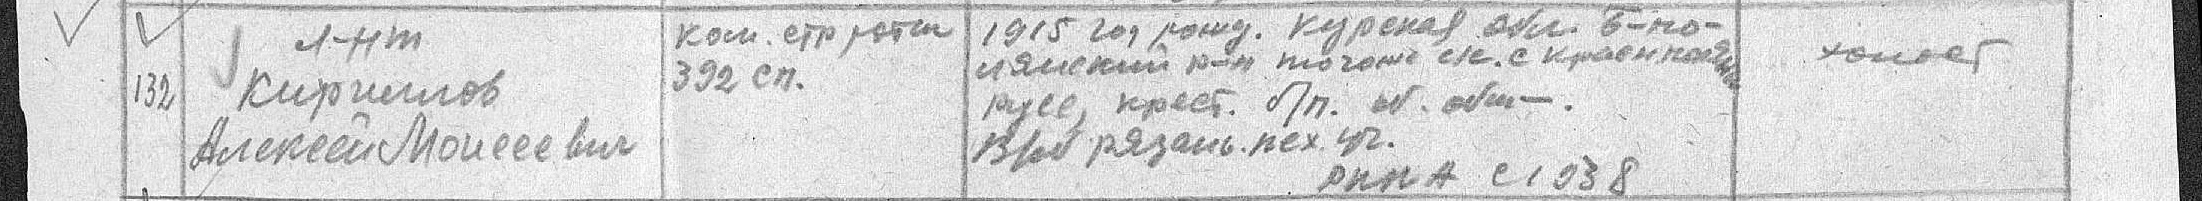 132
л-нт
Кирилов
Алексей Моисеевич
ком. стр роты
392 сп.
1915 год рожд. Курская обл. Б-по-
лянский р-н с
русс, крест. б/п. об. общ-.
В/об рязань. пех. уч.
РККА с 1938
холост